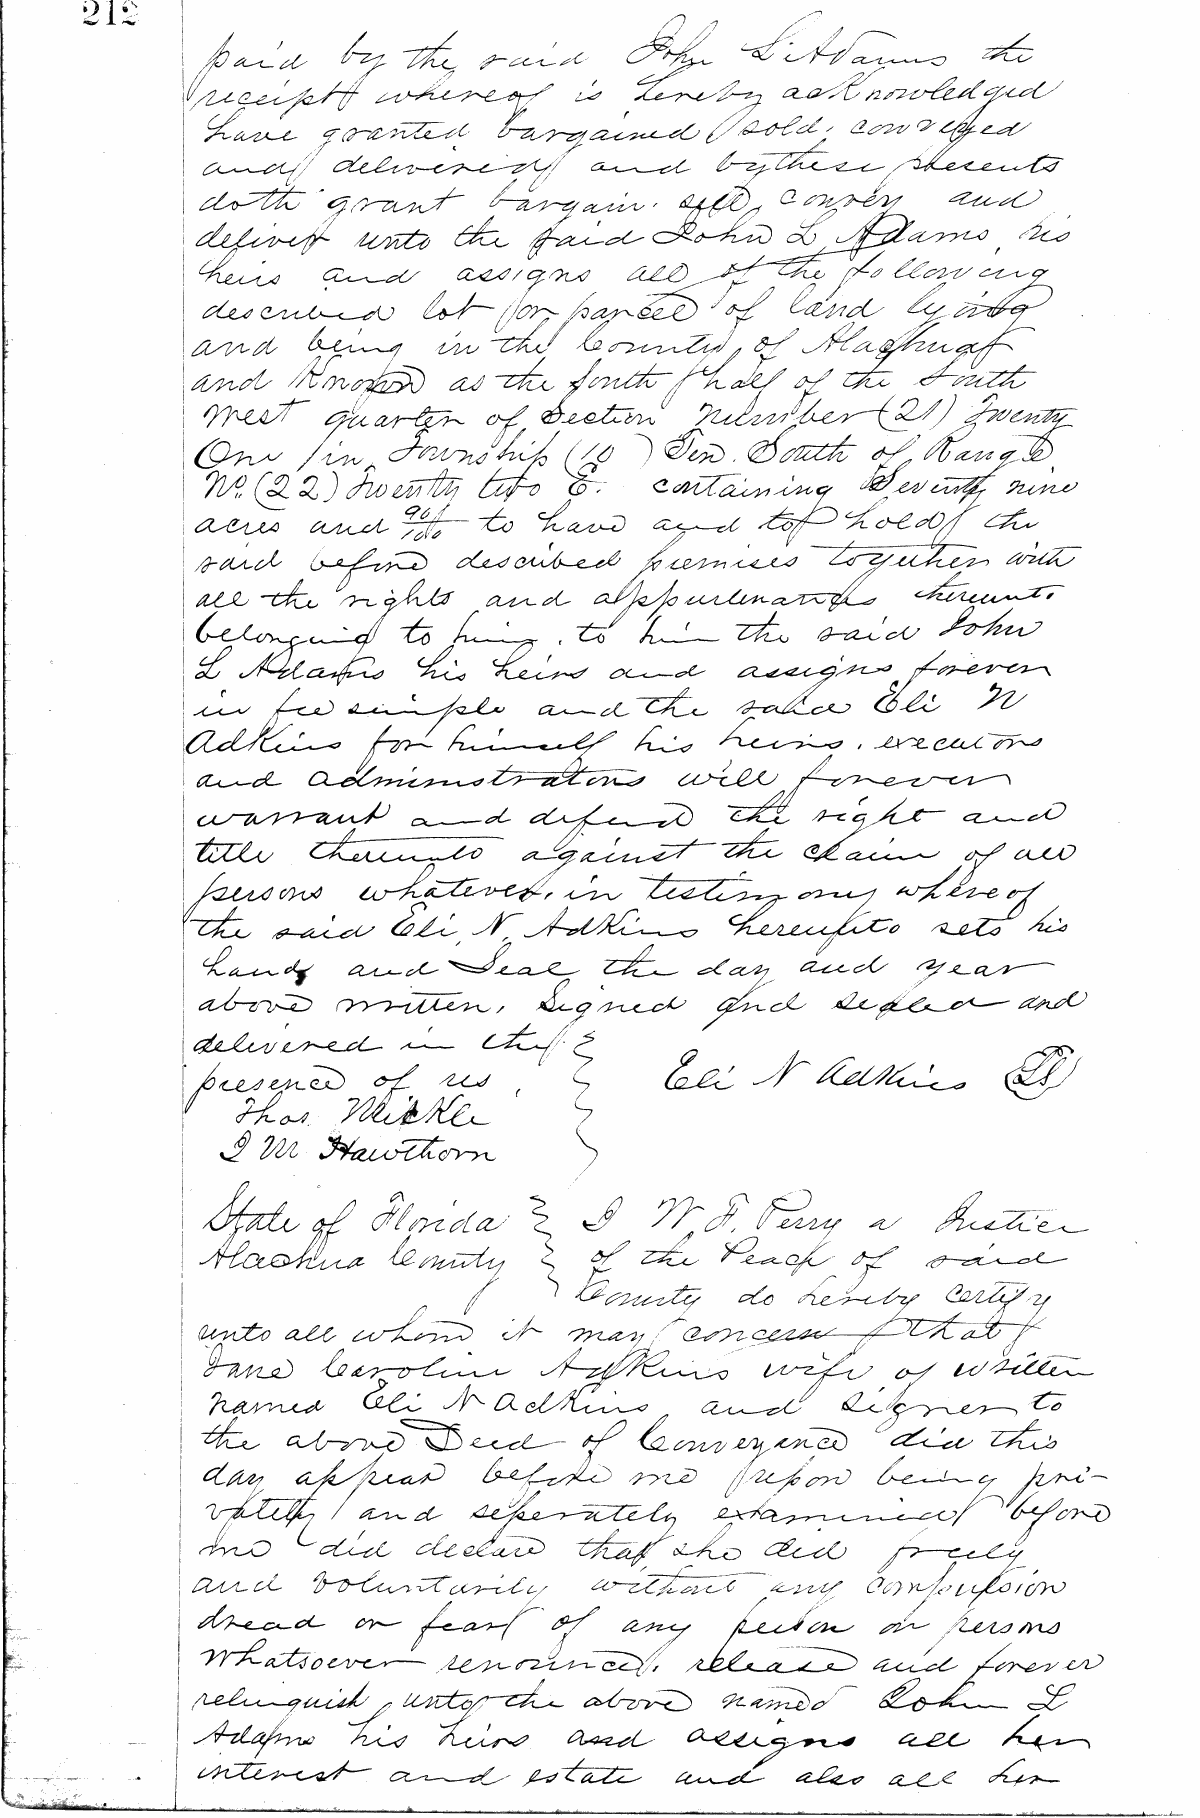 212
paid by the said John L Adams the
receipt whereof is hereby acknowledged
have granted bargained sold, conveyed
and delivered and by these presents
doth grant bargain. sell, convey and
deliver unto the said John L Adams his
heirs and assigns all of the following
described lot or parcel of land lying
and being in the County of Alachua
and Known as the South half of the South
West quarter of Section Number (21) Twenty
One in Township (10) Ten. South of Range
No. (22) Twenty two E. containing Seventy nine
acres and 90/100 to have and to hold the
said before described premises together with
all the rights and appurtenances thereunto
belonging to him, to him the said John
L Adams his heirs and assigns forever
in fee simple and the said Eli N
Adkins for himself his heirs, executors
and administrators will forever
warrant and defend the right and
title thereunto against the claim of all
persons whatever, in testimony whereof
the said Eli N Adkins hereunto sets his
hand and Seal the day and year
above written, Signed and Sealed and
delivered in the
presence of us Eli N Adkins LS
Thos. Mickle
I M Hawthorn
State of Florida I W. F. Perry a Justice
Alachua County of the Peace of said
County do hereby certify
unto all whom it may concern that
Jane Caroline Adkins wife of written
named Eli N Adkins and signer to
the above Deed of Conveyance did this
day appear before me upon being pri-
vately and seperately examined before
me did declare that she did freely
and voluntarily without any compulsion
dread or fear of any person or persons
whatsoever renounced, release and forever
relinquish unto the above named John L
Adams his heirs and assigns all her
interest and estate and also all her